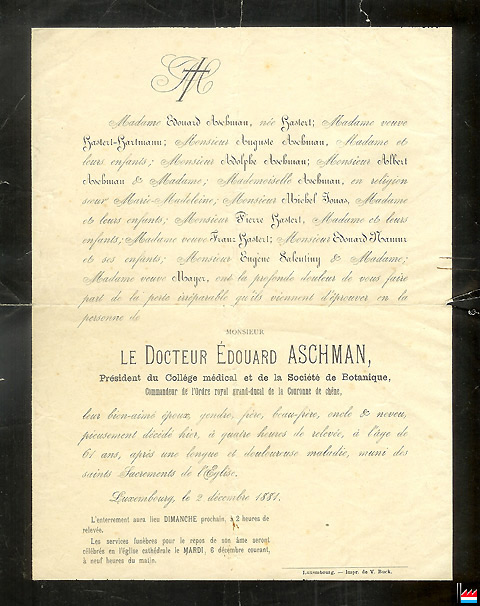 Madame Edouard Aschman, née Hastert; Madame veuve
Hastert-Hartmann; Monsieur Auguste Aschman, Madame et
leurs enfants; Monsieur Adolphe Aschman; Monsieur Albert
Aschman & Madame; Mademoiselle Aschman, en religion
sœur Marie-Madeleine; Monsieur Michel Jonas, Madame
et leurs enfants; Monsieur Pierre Hastert, Madame et leurs
enfants; Madame veuve Franz Hastert; Monsieur Edouard Namur
et ses enfants; Monsieur Eugène Salentiny & Madame;
Madame veuve Mayer, ont la profonde douleur de vous faire
part de la perte irréparable qu'ils viennent d'éprouver en la
personne de
MONSIEUR
LE DOCTEUR ÉDOUARD ASCHMAN,
Président du Collége médical et de la Société de Botanique,
Commandeur de l'Ordre royal grand-ducal de la Couronne de chêne,
leur bien-aimé époux, gendre, père, beau-père, oncle & neveu,
pieusement décédé hier, à quatre heures de relevée, à l'âge de
61 ans, après une longue et douloureuse maladie, muni des
saints Sacrements de l'Eglise.
Luxembourg, le 2 décembre 1881.
L'enterrement aura lieu DIMANCHE prochain, à 2 heures de
relevée.
Les services funèbres pour le repos de son âme seront
célébrés en l'église cathédrale le MARDI, 6 décembre courant,
à neuf heures du matin.
Luxembourg. — Impr. de V. Buck.